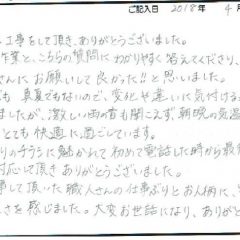 ご記入日 2018年 4月
工事をして頂き、ありがとうございました。
作業と、こちらの質問にわかりやすく答えてくださり、
さんにお願いして良かった!!と思いました。
も真夏でもないので、変化や違いに気付ける
ましたが、激しい雨の音も聞こえず、朝晩の気温
とても快適に過ごしています。
りのチラシに魅かれて初めて電話した時から最
対応して頂きありがとうございました。
事して頂いた職人さんの仕事ぶりとお人柄に、
さを感じました。大変お世話になり、ありがと